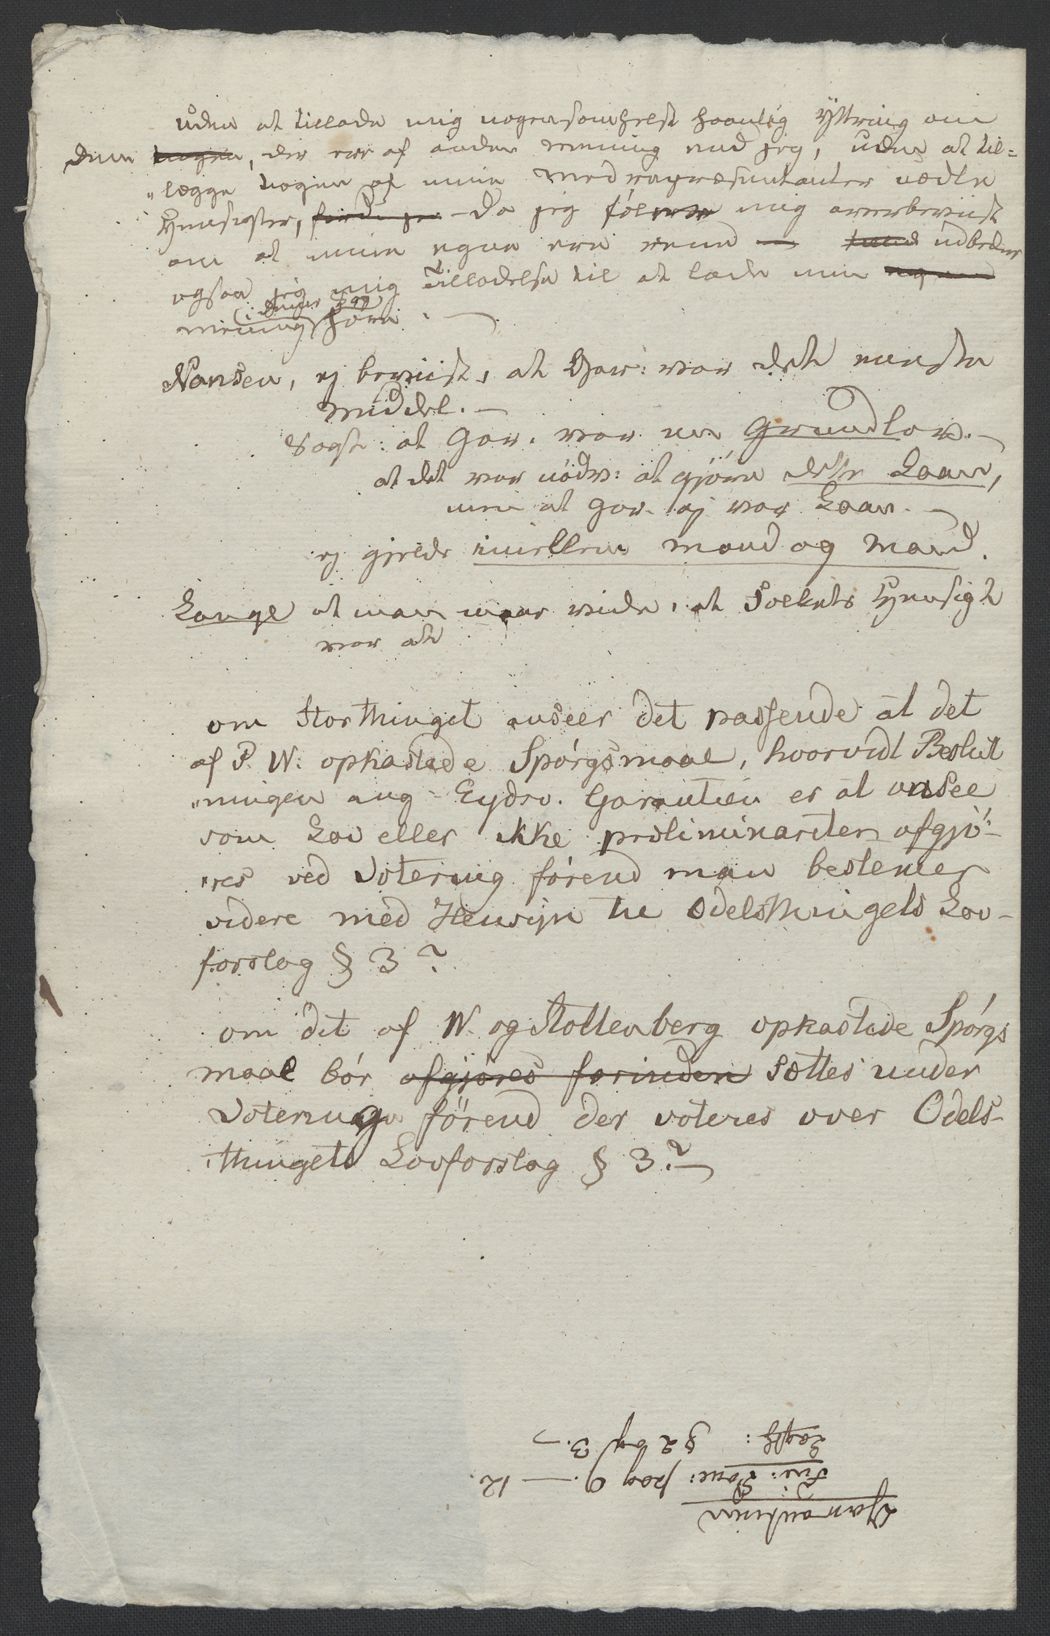 uden at tillade mig nogensomhelst haanlig Yttring om
dem nogen, der ere af anden mening end jeg, uden at til=
"lægge nogen af mine medrepræsentanter uædle
Hensigter, fordi jeg – da jeg føler mig overbeviist
om at mine egne ere reene — udbeder
ogsaa jeg mig Tilladelse til at lade min egen
mening i denne Sag høre. —
Nansen, ej beviist, at Gar: var det eneste
middel. —
Sagt: at Gar. var en Grundlov. —
at det var nødv: at gjøre dette Laan,
men at Gar. ej var Laan. —
ej gjelde imellem mand og mand.
Lange at man maae vide, at Folkets Hensigt
var at
om Storthinget anseer det passende at det
af P. W. opkastede Spørgsmaal, hvorvidt Beslut
"ningen ang Eydsv. Garantien er at ansee
som Lov eller ikke præliminariter afgjö-
"res ved Votering førend man bestemer
videre med Hensyn til Odelsthingets Lov-
forslag § 3?
om det af W. og Stoltenberg opkastede Spørgs
maal bør afgjøres forinden sættes under
Votering førend der voteres over Odels-
thingets Lovforslag § 3? —
Garantien
Fin: Come: pag 9. — 12.
Lagth: § 2 og 3. —